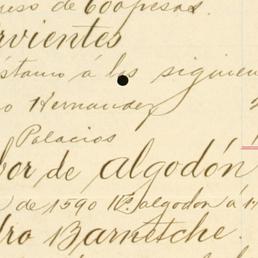 de 600 pesos.
rvientes
éstamo á los siguien
o Hernandez
Palacios
bor de algodón
de 1590 Ks. algodon á 1
dro Barnetche.